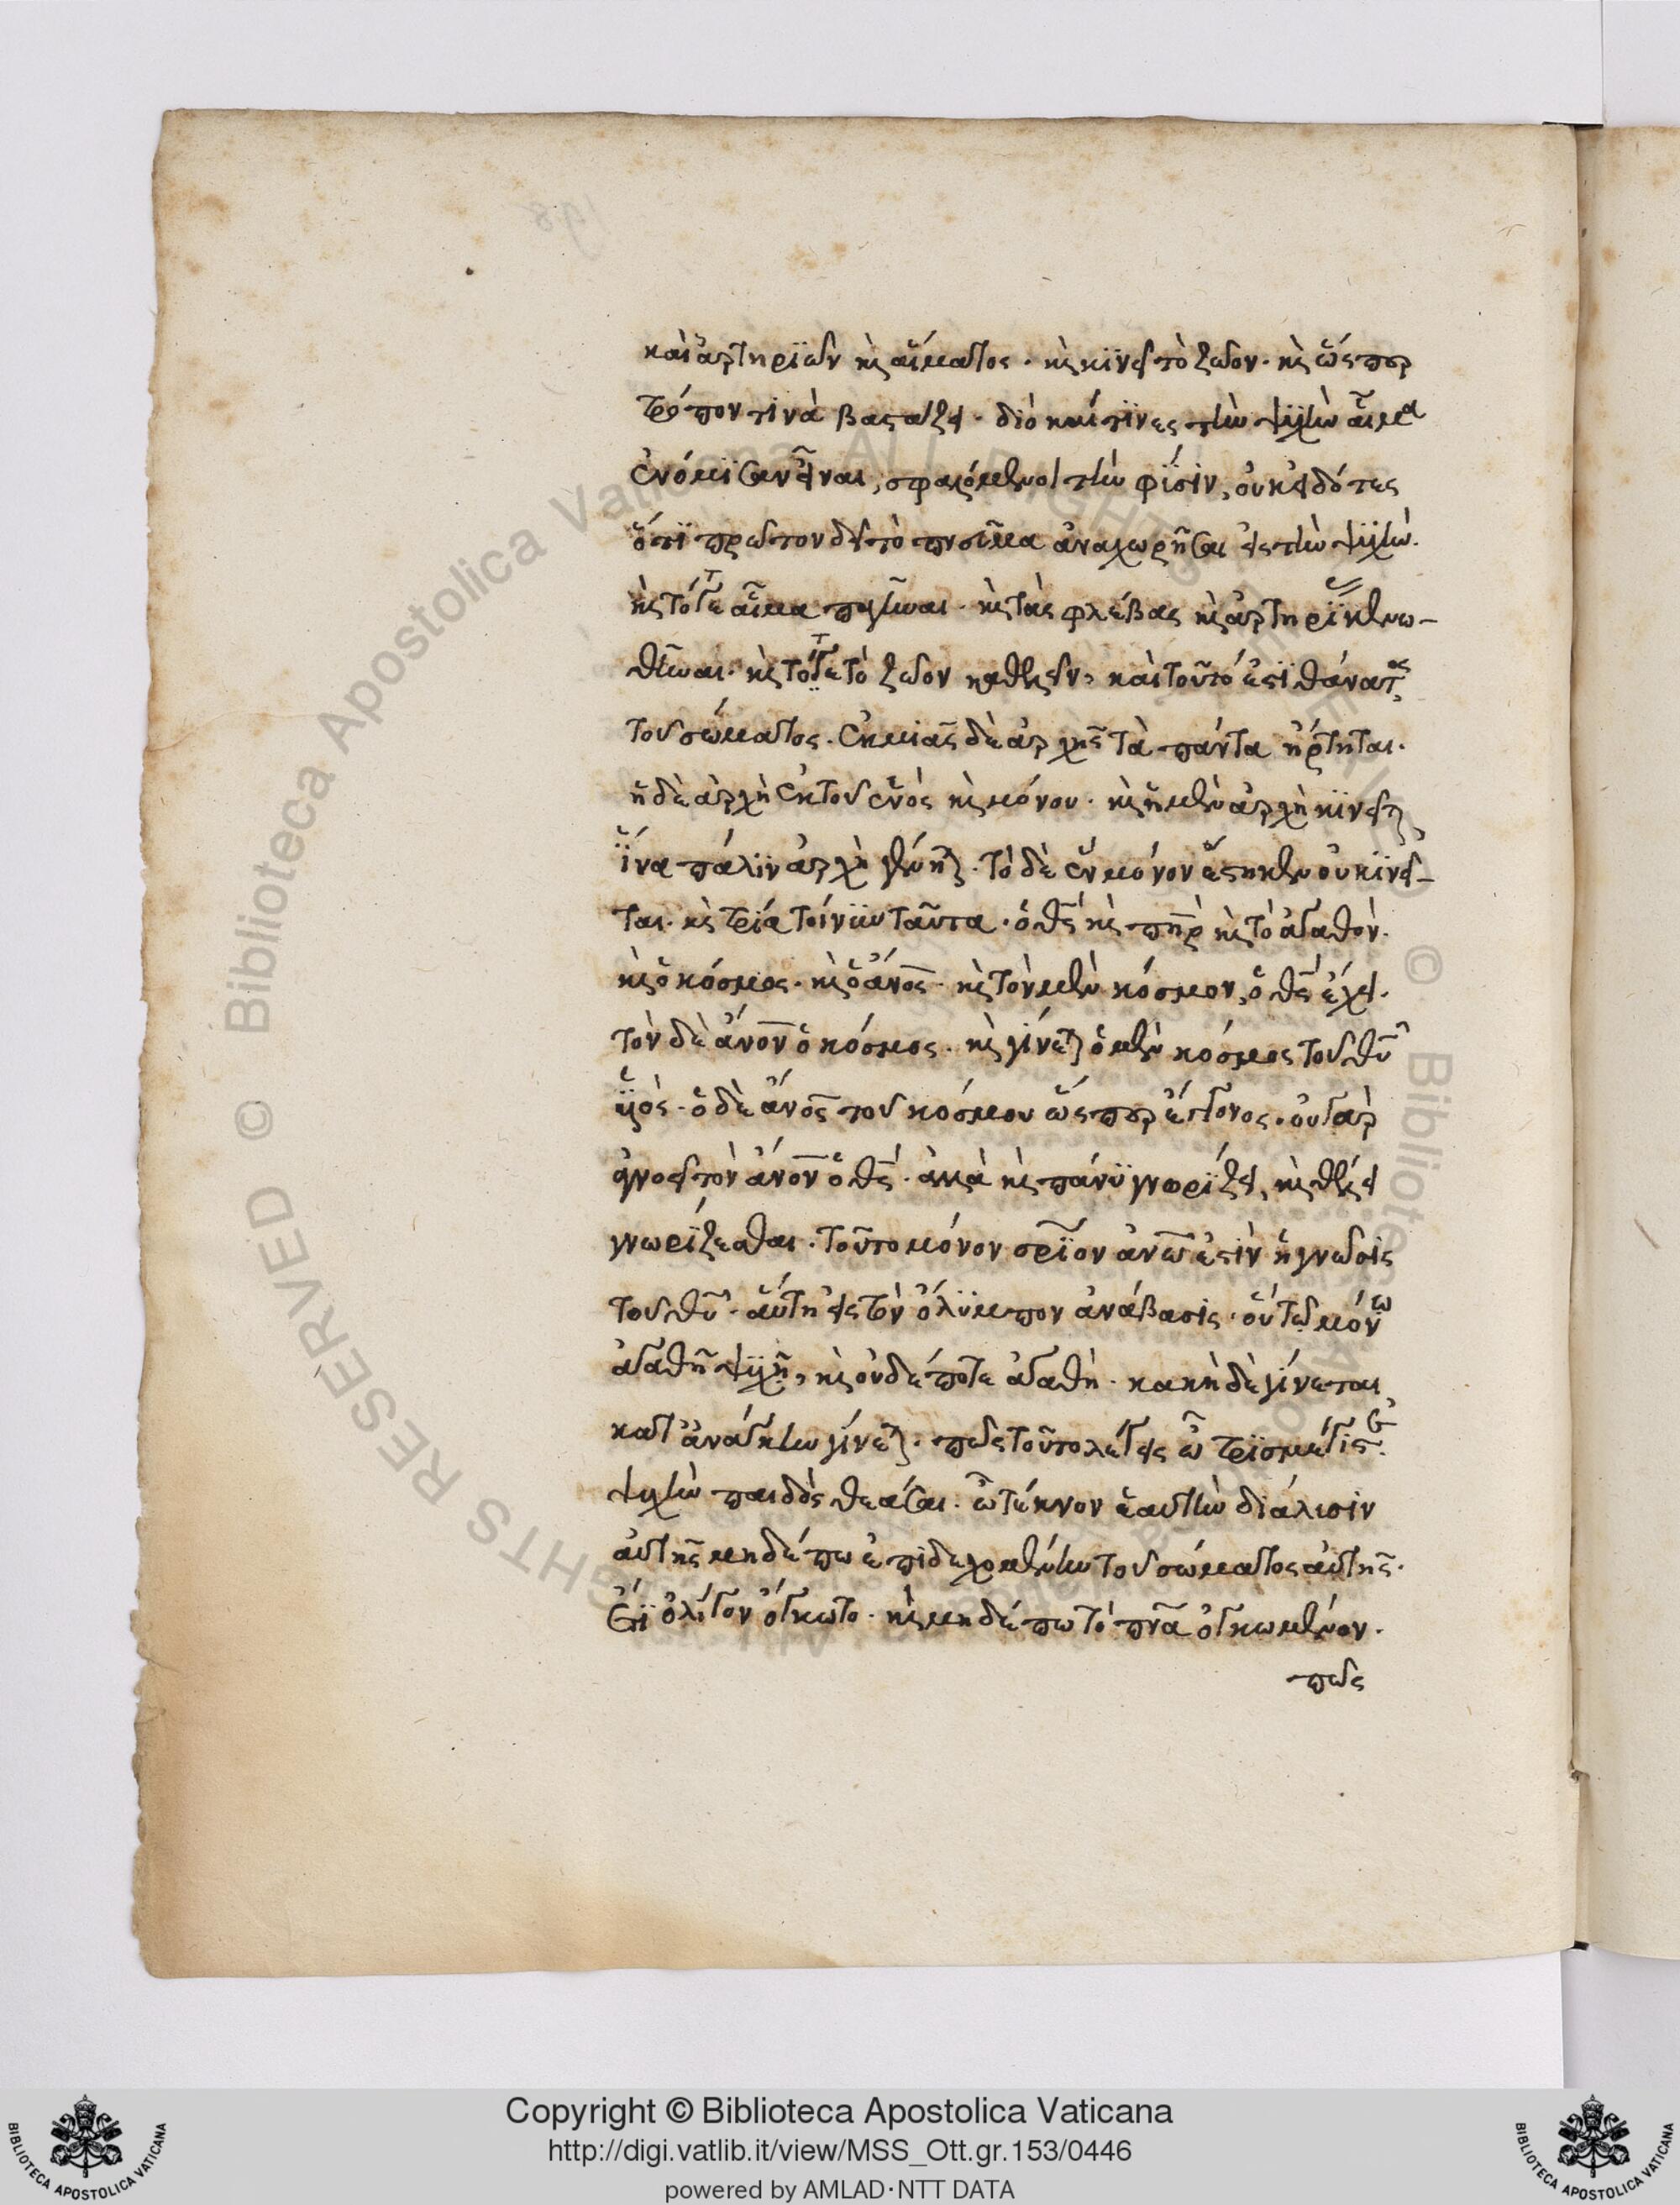 καὶ ἀρτηριῶν κὶ αἵματος · κὶ κινεῖ τὸ ζῶον · κὶ ὥσπερ
τρόπον τινὰ βαστάζει · διὸ καί τινες τὴν ψυχὴν αἷμα
ἐνόμισαν εἶναι, σφαλόμενοι τὴν φύσιν, οὐκ εἰδότες
ὅτι πρῶτον δεῖ τὸ πνεῦμα ἀναχωρῆσαι εἰς τὴν ψυχὴν.
κὶ τότε αἷμα παγῆναι · κὶ τὰς φλέβας κὶ ἀρτηρί κενω-
θῆναι · κὶ τότε τὸ ζῶον καθελεῖν, καὶ τοῦτό ἐστι θάνατος
τοῦ σώματος. ἐκ μιᾶς δὲ ἀρχῆς τὰ πάντα ἤρτηται.
ἡ δὲ ἀρχὴ ἐκ τοῦ ἑνὸς κὶ μόνου · κὶ ἡ μὲν ἀρχὴ κινεῖται,
ἵνα πάλιν ἀρχὴ γένηται · τὸ δὲ ἓν μόνον ἕστηκεν οὐ κινεῖ-
ται · κὶ τρία τοίνυν ταῦτα · ὁ θς κὶ πηρ κὶ τὸ ἀγαθὸν.
κὶ ὁ κόσμος · κὶ ὁ ἄνος · κὶ τὸν μὲν κόσμον, ὁ θς ἔχει.
τὸν δὲ ἄνον ὁ κόσμος · κὶ γίνεται ὁ μὲν κόσμος τοῦ θυ
ὑὸς · ὁ δὲ ἄνος τοῦ κόσμου ὥσπερ ἔγγονος · οὐ γὰρ
ἀγνοεῖ τὸν ἄνον ὁ θς · ἀλλὰ κὶ πάνυ γνωρίζει, κὶ θέλει
γνωρίζεσθαι · τοῦτο μόνον σριον ἀνω ἐστὶν ἡ γνῶσις
τοῦ θυ · αὕτη εἰς τὸν ὄλυμπον ἀνάβασις · οὕτω μόνω
ἀγαθὴ ψυχὴ, κὶ οὐδέποτε ἀγαθὴ · κακὴ δὲ γίνεται,
κατ ἀνάγκην γίνεται · πῶς τοῦτο λέγεις ὦ τρισμέγιστε.
ψυχὴν παιδὸς θεάσαι · ὦ τέκνον ἑαυτὴν διάλυσιν
αὐτῆς μηδέπω ἐπιδεχομένην τοῦ σώματος αὐτῆς.
ἔτι ὀλίγον ὄγκωτο · κὶ μηδέπω τὸ πνα ὀγκωμένον.
πῶς
Copyright © Biblioteca Apostolica Vaticana
http://digi.vatlib.it/view/MSS_Ott.gr.153/0446
powered by AMLAD·NTT DATA